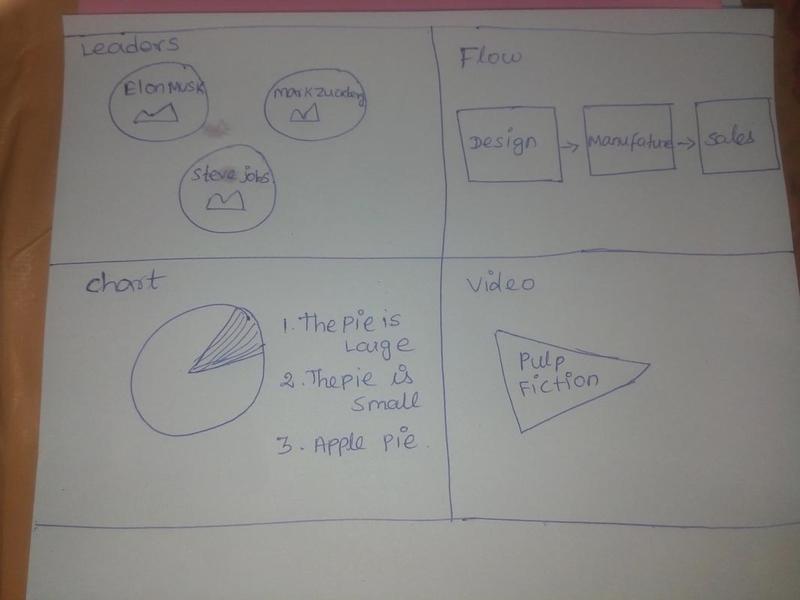 Leaders
Elon Musk
Mark Zucderg
Steve jobs
Flow
Design
Manufature
Sales
Chart
1. The pie is
Large
2. The pie is
Small
3. Apple pie.
Video
Pulp
Fiction